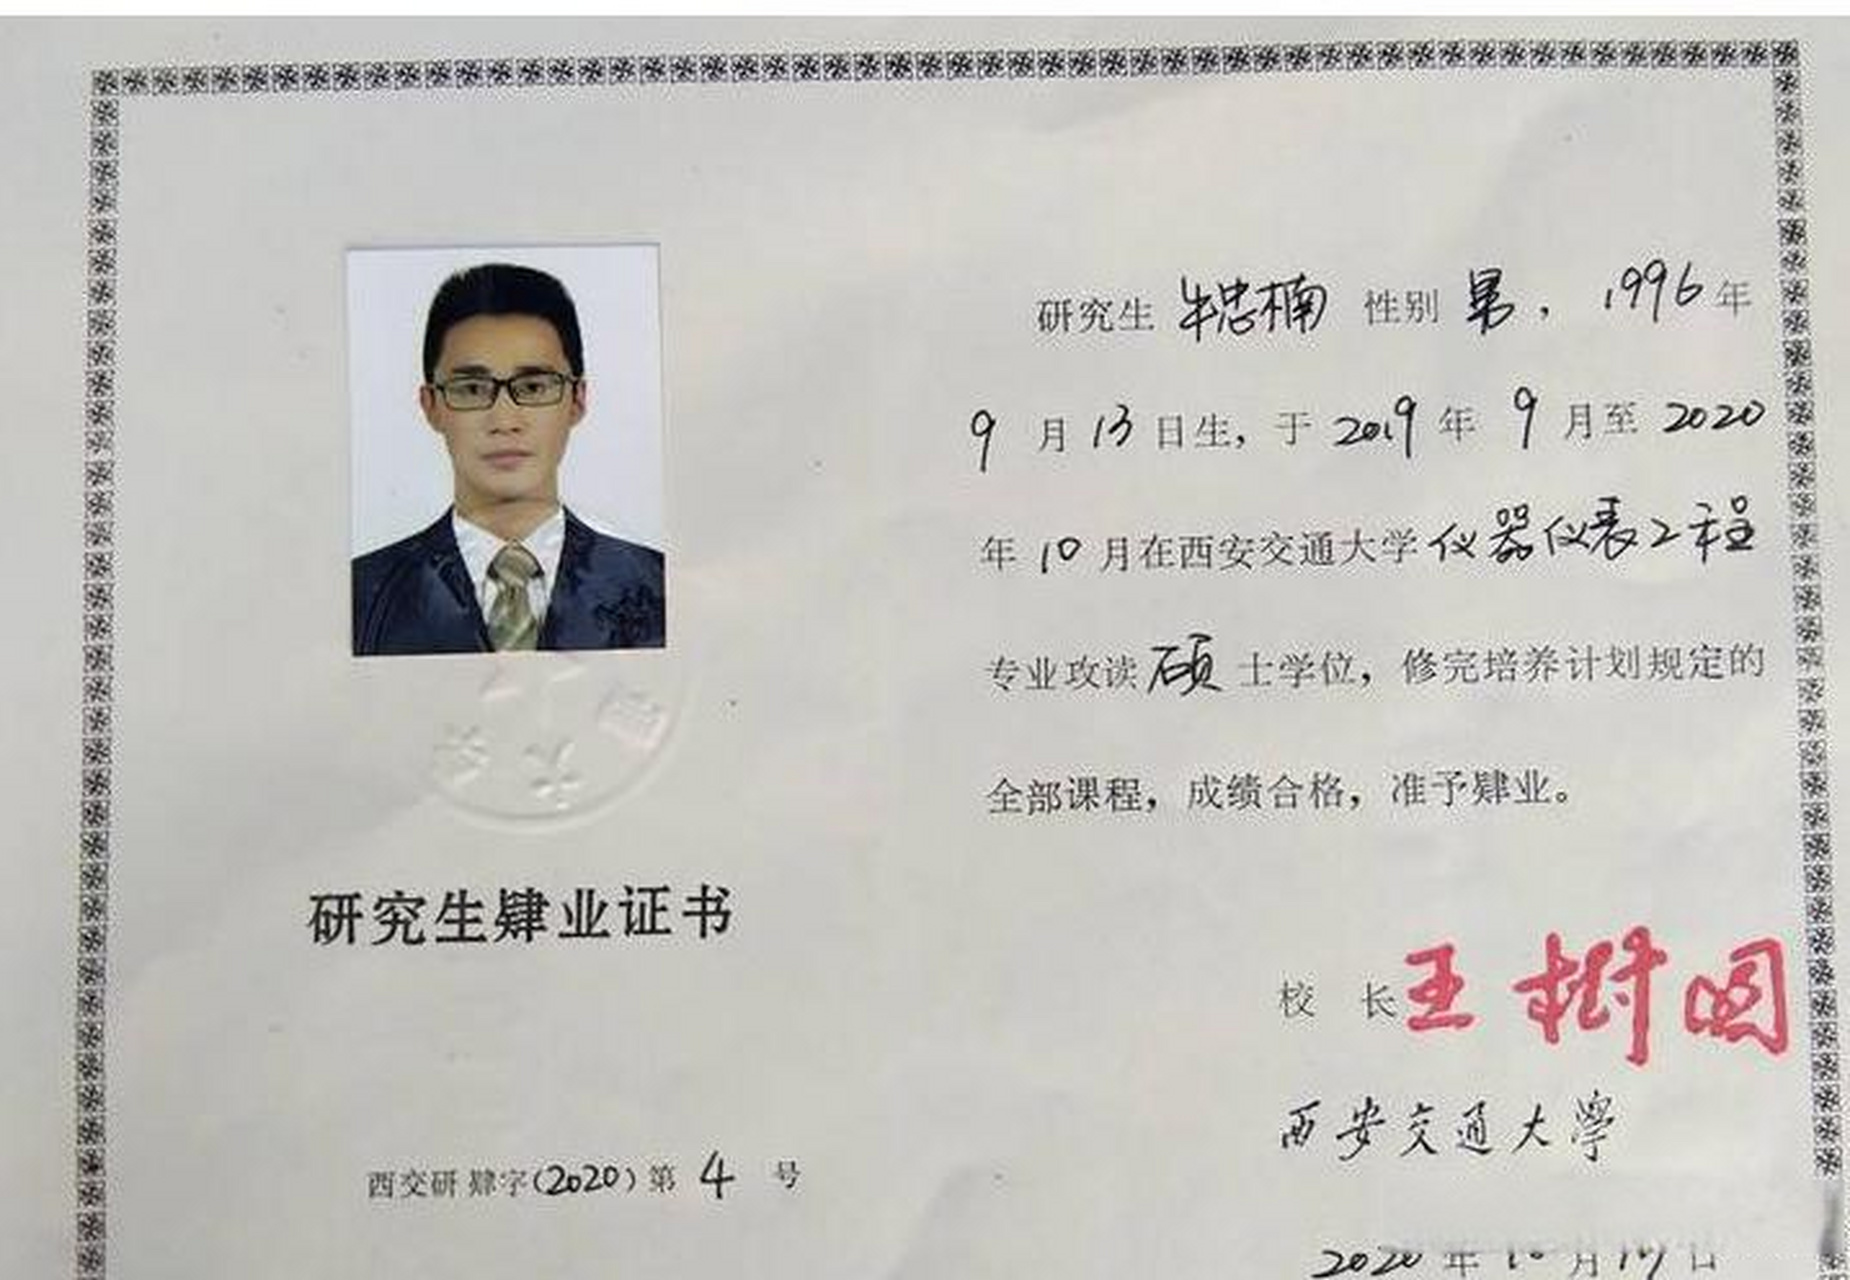 研究生 牛忠楠 性别 男，1996年
9月13日生，于2019年9月至2020
年10月在西安交通大学仪器仪表工程
专业攻读硕士学位，修完培养计划规定的
全部课程，成绩合格，准予肄业。
研究生肄业证书
校 长 王树国
西安交通大学
西交研肄字(2020)第4号
2020年10月 日